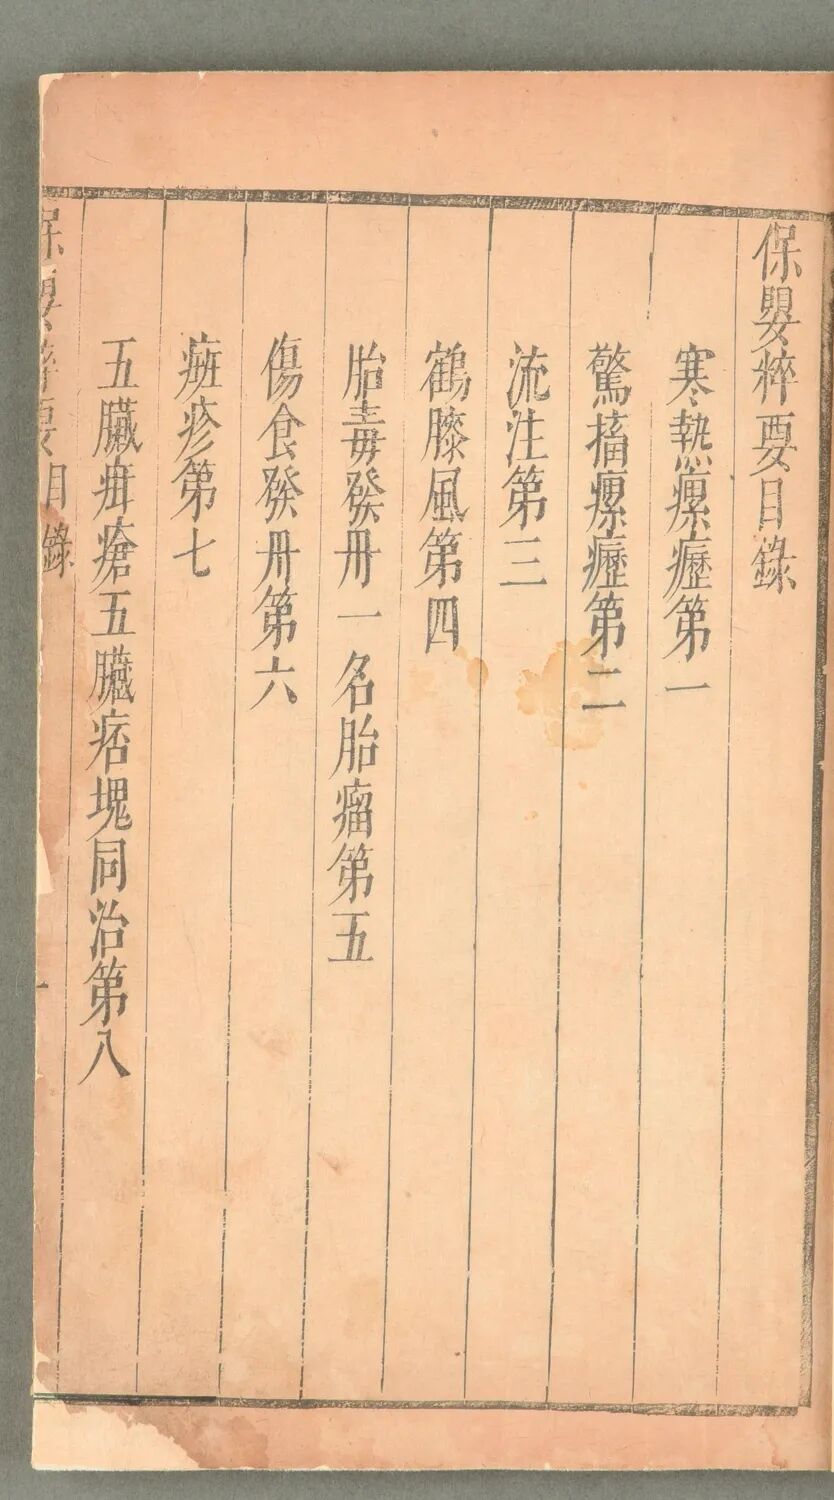 保嬰粹要目錄
寒熱瘰癧第一
驚搐瘰癧第二
流注第三
鶴膝風第四
胎毒發丹一名胎瘤第五
傷食發丹第六
斑疹第七
五臟疳瘡五臟痞塊同治第八
保嬰粹要目錄
一